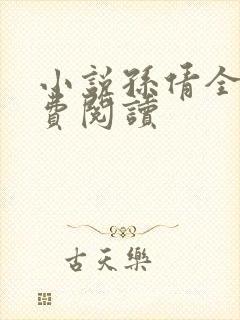 小說孫倩全
費閱讀
古天樂